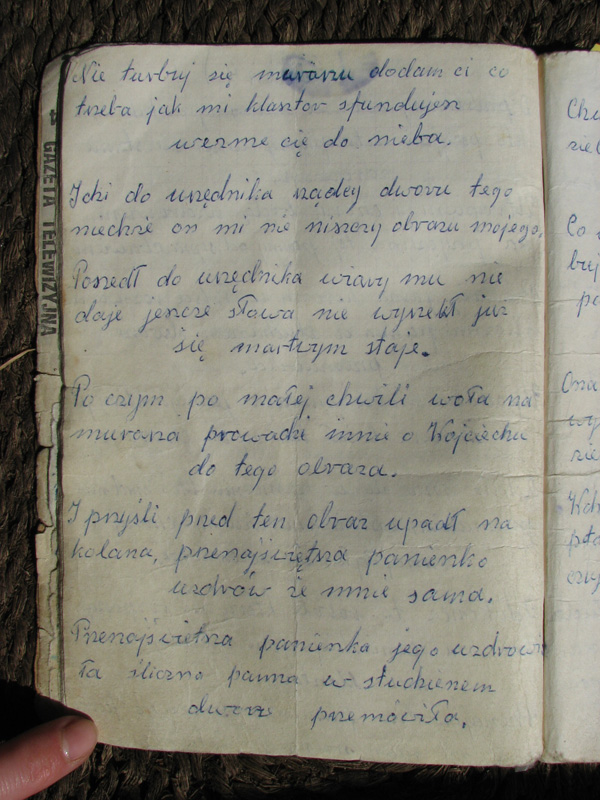 Nie turbuj się murarzu dodam ci co
trzeba jak mi klasztor sfundujesz
wezme cię do nieba.
Idzi do urzędnika rządcy dworu tego
niechże on mi nie niszczy obrazu mojego.
Poszedł do urzędnika wiary mu nie
daje jeszcze słowa nie wyrzekł już
się martwym staje.
Po czym po małej chwili woła na
murarza prowadź mnie o Wojciechu
do tego obraza.
I przyśli przed ten obraz upadł na
kolana, przenajświętsza panienko
uzdrów że mnie sama.
Przenajświetsza panienka jego uzdrowiła
ta śliczna panna w studzienem
dworze przemówiła.
4 GAZETA TELEWIZYJNA
Co
Ona